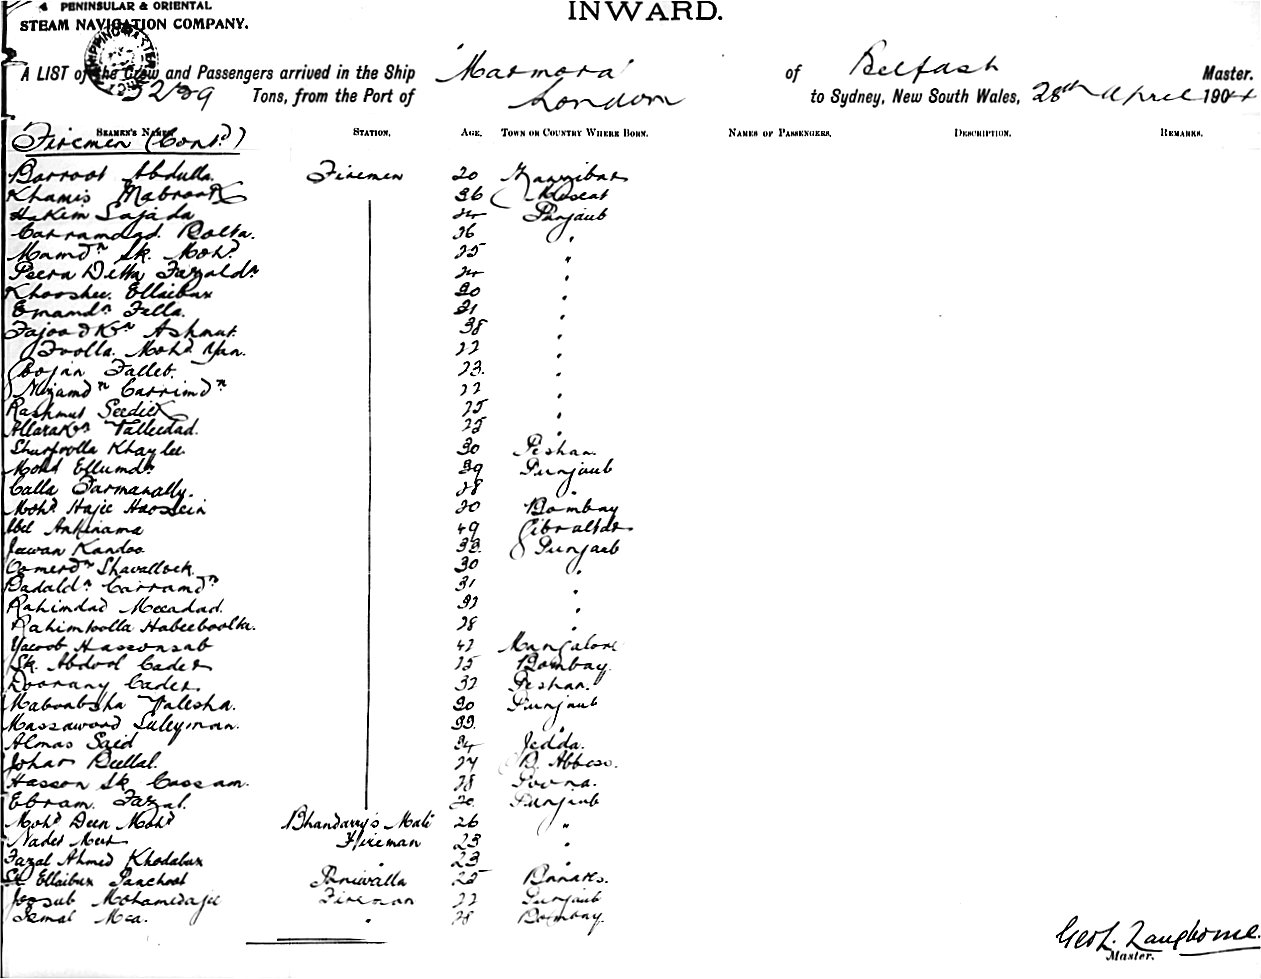 PENINSULAR & ORIENTAL
STEAM NAVIGATION COMPANY.
INWARD.
A LIST of the Crew and Passengers arrived in the Ship Marmora of Belfast Master.
Tons, from the Port of London to Sydney, New South Wales, 28th April 190
SEAMEN'S NAMES. STATION. AGE. TOWN OR COUNTRY WHERE BORN. NAMES OF PASSENGERS. DESCRIPTION. REMARKS.
Firemen (Contd.)
Barroot Abdulla. Firemen 20 Zanzibar
Khamis Mabrook 36 Muscat
Hakim Sajada Punjaub
Carramdad Bolta. 36 "
Mamdn Sk. Mohd. 25 "
Peera Ditta Fazaldn "
Khooshee. Ellaibux 30 "
Emamdn Fulla. 31 "
Ashmut. 38 "
Mohd. 22 "
23. "
Nizamdn Carrimdn 22 "
Rashmut Seedick 25 "
25 "
Khaylee. 30 Peshan.
Mohd Ellumdn 39 Punjaub
Calla Farmanally. 28 "
Mohd Hajee Hoossein 20 Bombay
49 Gibraltar
Jewan Kandoo 33. Punjaub
Shavallock. 30 "
Badaldn Carramdn 31 "
Rahimdad Meeadad. 32 "
Rahimtoolla Habeeboolla. 28 "
Yacoob Hassonsab 42 Mangalore
Sk. Abdool Cader 25 Bombay.
Doorany Cader. 32 Peshan.
Maboobsha 30 Punjaub
Massawood Suleyman. 33. "
Almas Said 34 Jedda.
Johar Bullal. 27
Hasson Sk Cassam. 28 Poona.
Ebram. Fazal. 20 Punjaub
Mohd Deen Mohd Bhandarry's Mate 26 "
Nader Fireman 23 "
Fazal Ahmed Khodabux " 23 "
Sk Ellaibux Panchoot Paniwalla 25 Benares.
Joosub Mohamedajee Fireman 22 Punjaub
Mea. " 28 Bombay.
Geo L. Langborne.
Master.